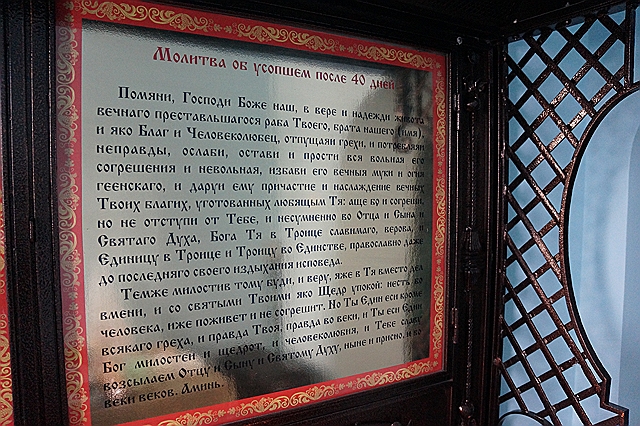 Молитва об усопшем после 40 дней
Помяни, Господи Боже наш, в вере и надежди живота
вечнаго преставльшагося раба Твоего, брата нашего (имя),
и яко Благ и Человеколюбец, отпущаяи грехи, и потребляяи
неправды, ослаби, остави и прости вся вольная его
согрешения и невольная, избави его вечныя муки и огня
геенскаго, и даруи ему причастие и наслаждение вечных
Твоих благих, уготованных любящым Тя: аще бо и согреши,
но не отступи от Тебе, и несумненно во Отца и Сына и
Святаго Духа, Бога Тя в Троице славимаго, верова, и
Единицу в Троице и Троицу во Единстве, православно даже
до последняго своего издыхания исповеда.
Темже милостив тому буди, и веру, яже в Тя вместо дел
вмени, и со святыми Твоими яко Щедр упокой: несть бо
человека, иже поживет и не согрешит. Но Ты Един еси кроме
всякаго греха, и правда Твоя, правда во веки, и Ты еси Един
Бог милостей и щедрот, и человеколюбия, и Тебе славу
возсылаем Отцу и Сыну и Святому Духу, ныне и присно, и во
веки веков. Аминь.